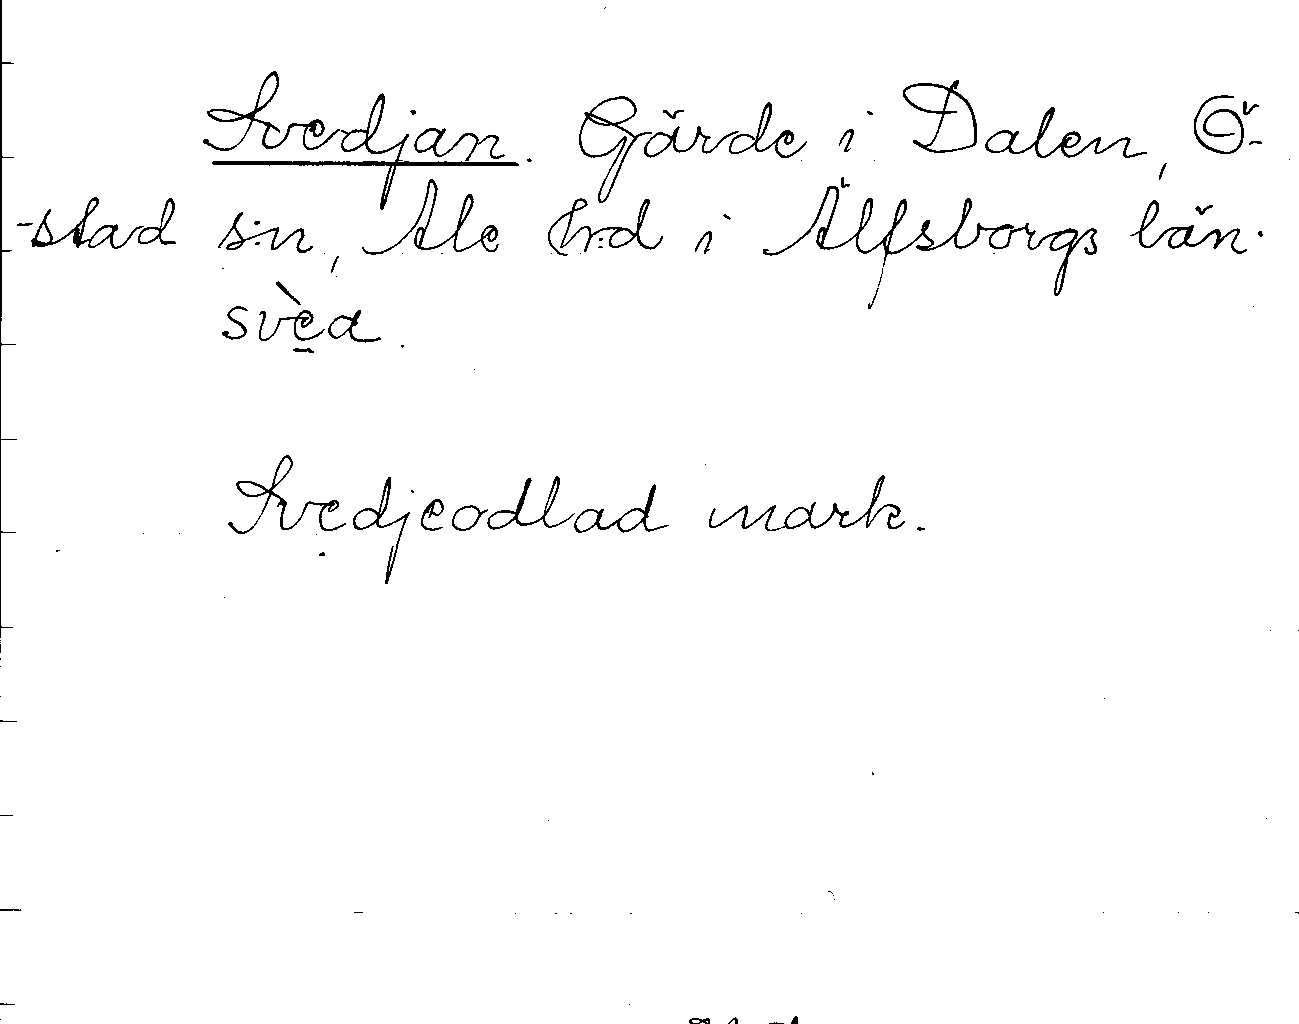 Svedjan. Gärde i Dalen, Ö-
-stad s:n, Ale h:d i Älfsborgs län.
svè̠a.
Svedjeodlad mark.